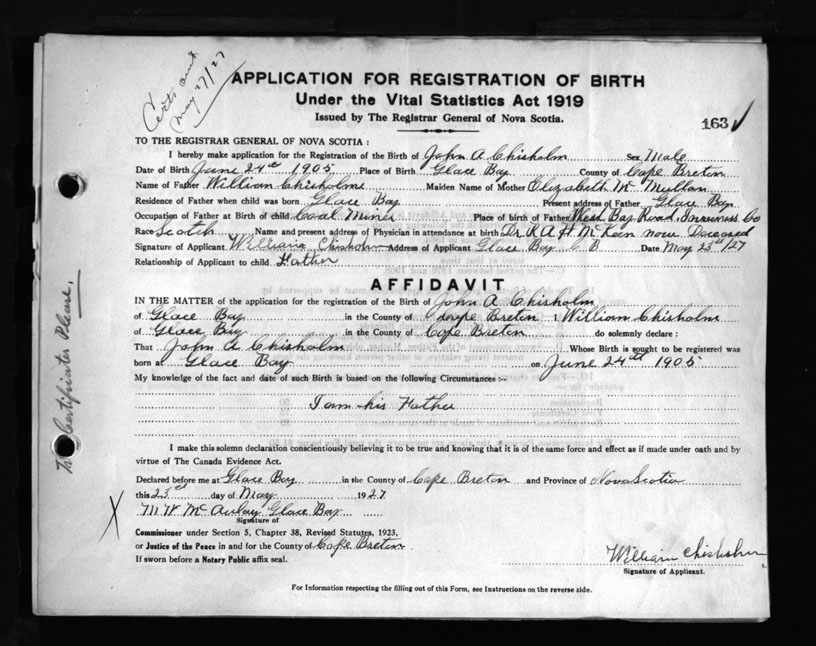 Certs sent
May 27/27
APPLICATION FOR REGISTRATION OF BIRTH
Under the Vital Statistics Act 1919
Issued by The Registrar General of Nova Scotia.
163
TO THE REGISTRAR GENERAL OF NOVA SCOTIA :
I hereby make application for the Registration of the Birth of John A Chisholm Sex Male
Date of Birth June 24th 1905 Place of Birth Glace Bay County of Cape Breton
Name of Father William Chisholm Maiden Name of Mother Elizabeth
Residence of Father when child was born Glace Bay Present address of Father Glace Bay
Occupation of Father at Birth of child Coal Miner Place of Birth of Father West Bay Road Inverness Co
Race Scotch Name and present address of Physician in attendance at birth Dr. K A H. McKeen now Deceased
Signature of Applicant William Chisholm Address of Applicant Glace Bay C B Date May 23rd/27
Relationship of Applicant to child Father
AFFIDAVIT
IN THE MATTER of the application for the registration of the Birth of John A Chisholm
of Glace Bay in the County of Cape Breton I, William Chisholm
of Glace Bay in the County of Cape Breton do solemnly declare :
That John A Chisholm Whose Birth is sought to be registered was
born at Glace Bay on June 24th 1905
My knowledge of the fact and date of such Birth is based on the following Circumstances :-
I am his Father
I make this solemn declaration conscientiously believing it to be true and knowing that it is of the same force and effect as if made under oath and by
virtue of The Canada Evidence Act.
Declared before me at Glace Bay in the County of Cape Breton and Province of Nova Scotia
this 23rd day of May 1927
M W McAulay Glace Bay
Signature of
Commissioner under Section 5, Chapter 38, Revised Statutes, 1923,
or Justice of the Peace in and for the County of Cape Breton
If sworn before a Notary Public affix seal.
William Chisholm
Signature of Applicant.
For Information respecting the filling out of this Form, see Instructions on the reverse side.
Certificates Please.